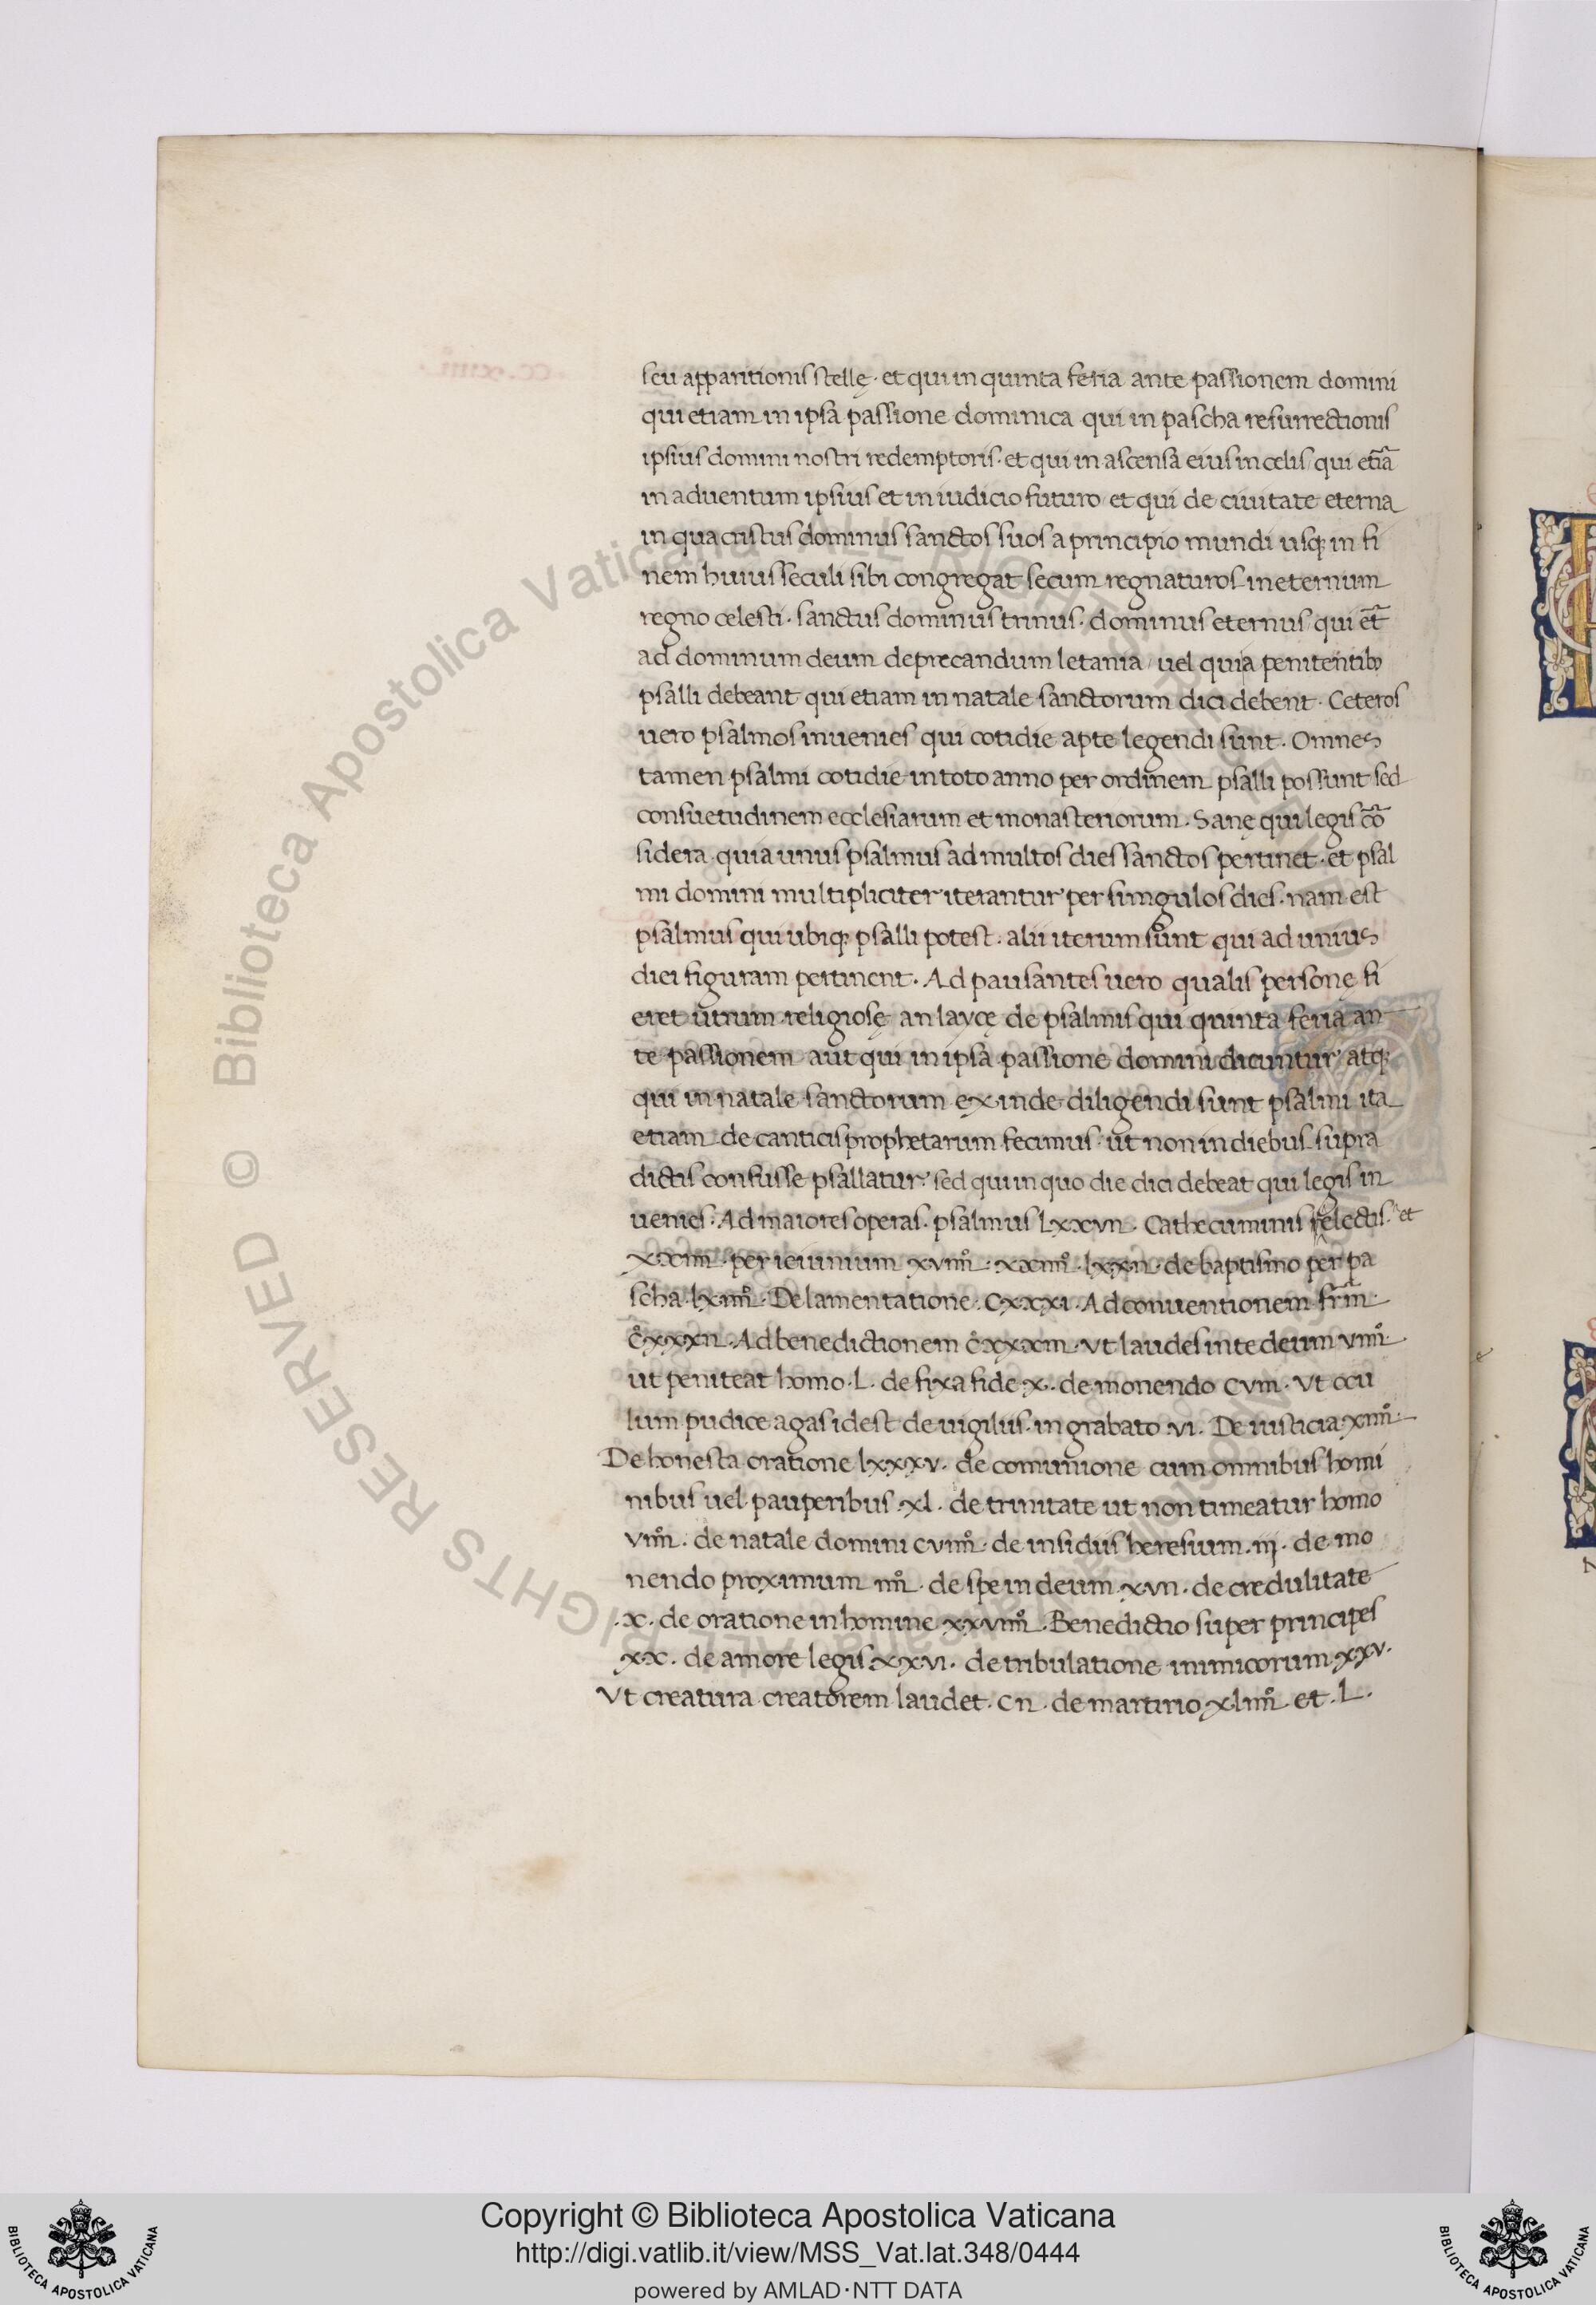 seu apparitionis stellę · et qui in quinta feria ante passionem domini
qui etiam in ipsa passione dominica qui in pascha resurrectionis
ipsius domini nostri redemptoris · et qui in ascensa eius in celis qui etiā
in aduentum ipsius et in iudicio futuro et qui de ciuitate eterna
in qua cristus dominus sanctos suos a principio mundi usq; in fi
nem huius seculi sibi congregat secum regnaturos in eternum
regno celesti · sanctus dominus trinus · dominus eternus qui et̄
ad dominum deum deprecandum letania uel quia penitentib;
psalli debeant qui etiam in natale sanctorum dici debent · Ceteros
uero psalmos inuenies qui cotidie apte legendi sunt · Omnes
tamen psalmi cotidie in toto anno per ordinem psalli possunt sed
consuetudinem ecclesiarum et monasteriorum · Sanę qui legis cō
sidera quia unus psalmus ad multos dies sanctos pertinet · et psal
mi domini multipliciter iterantur per singulos dies · nam est
psalmus qui ubiq; psalli potest · alii iterum sunt qui ad unius
diei figuram pertinent · Ad pausantes uero qualis personę fi
eret utrum religiosę an laycę de psalmis qui quinta feria an
te passionem aut qui in ipsa passione domini dicuntur atq;
qui in natale sanctorum exinde diligendi sunt psalmi ita
etiam de canticis prophetarum fecimus ut non in diebus supra
dictis confusse psallatur sed qui in quo die dici debeat qui legis in
uenies · Ad maiores operas · psalmus LXXVII · Cathecuminis electis · et
XXIIII · per ieiunium XVIIII° · XXIIII° · lXXII · de baptismo per pa
scha · lXIIII° · De lamentatione · CXXXI · Ad conuentionem fr̄m ·
CXXXII · Ad benedictionem CXXXIII · Vt laudes in te deum VIIII° ·
ut peniteat homo · L · de fixa fide · X · de monendo CVIII · Vt ocu
lum pudice agas idest de uigiliis · in grabato · VI · De iusticia XIIII° ·
De honesta oratione lXXXV · de comunione cum omnibus homi
nibus uel pauperibus · Xl · de trinitate ut non timeatur homo
VIIII° · de natale domini CVIIII° · de insidiis heresium · iij · de mo
nendo proximum IIII° · de spe in deum · XVII · de credulitate
· X · de oratione in homine XXVIIII° · Benedictio super principes
XX · de amore legis XXVI · de tribulatione inimicorum XXV ·
Vt creatura creatorem laudet · CII · de martirio XlIIII° · et · L ·
© Biblioteca Apostolica Vaticana ALL RIGHTS RESERVED
Copyright © Biblioteca Apostolica Vaticana
http://digi.vatlib.it/view/MSS_Vat.lat.348/0444
powered by AMLAD·NTT DATA
BIBLIOTECA APOSTOLICA VATICANA
BIBLIOTECA APOSTOLICA VATICANA